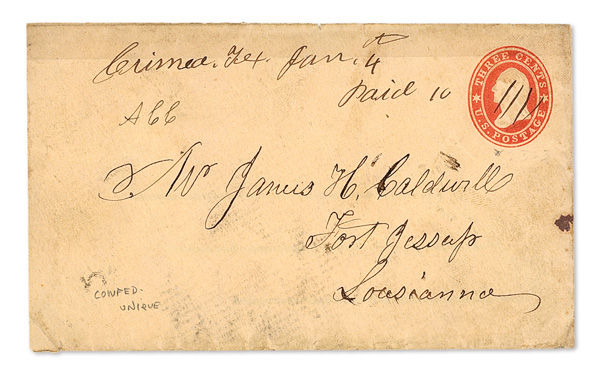 Crimea, Tex. Jan. 4
Paid 10
THREE CENTS
U.S. POSTAGE
Mr James H. Caldwell
Fort Jessup
Lousianna
CONFED.
UNIQUE